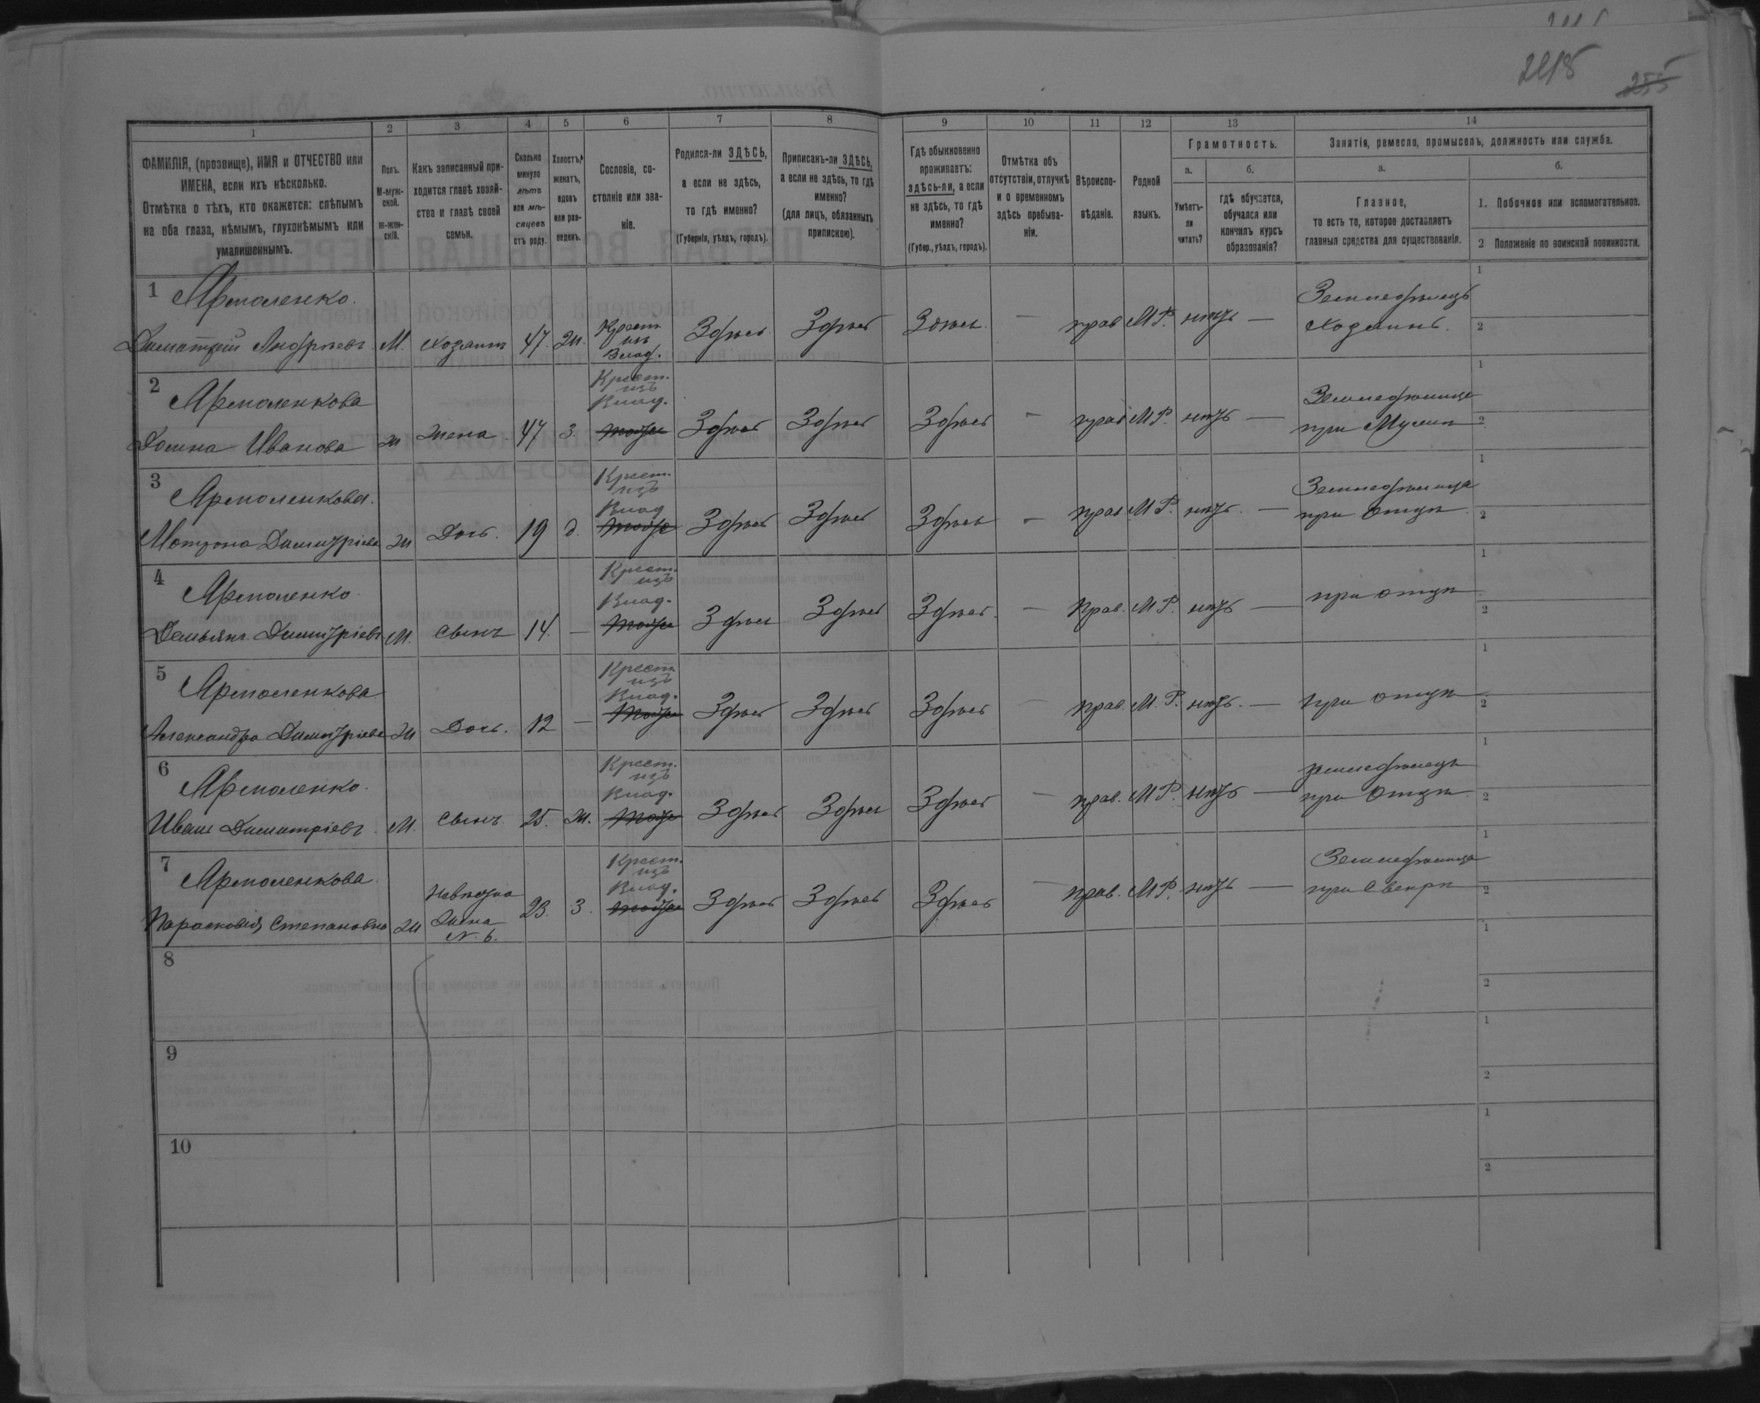 2415
255
1 2 3 4 5 6 7 8 9 10 11 12 13 14
ФАМИЛІЯ, (прозвище), ИМЯ и ОТЧЕСТВО или ИМЕНА, если ихъ нѣсколько.
Отмѣтка о тѣхъ, кто окажется: слѣпымъ на оба глаза, нѣмымъ, глухонѣмымъ или умалишеннымъ.
Полъ.
М-мужской.
Ж-женскій.
Какъ записанный приходится главѣ хозяйства и главѣ своей семьи.
Сколько минуло лѣтъ или мѣсяцевъ отъ роду.
Холостъ, женатъ, вдовъ или разведенъ.
Сословіе, состояніе или званіе.
Родился-ли ЗДѢСЬ, а если не здѣсь, то гдѣ именно?
(Губернія, уѣздъ, городъ).
Приписанъ-ли ЗДѢСЬ, а если не здѣсь, то гдѣ именно?
(для лицъ, обязанныхъ припискою).
Гдѣ обыкновенно проживаетъ: здѣсь-ли, а если не здѣсь, то гдѣ именно?
(Губер., уѣздъ, городъ).
Отмѣтка объ отсутствіи, отлучкѣ и о временномъ здѣсь пребываніи.
Вѣроисповѣданіе.
Родной языкъ.
Грамотность.
а.
Умѣетъ-ли читать?
б.
гдѣ обучается, обучался или кончилъ курсъ образованія?
Занятіе, ремесло, промыселъ, должность или служба.
а.
Главное,
то есть то, которое доставляетъ главныя средства для существованія.
б.
1. Побочное или вспомогательное.
2 Положеніе по воинской повинности.
1 Ярмоленко.
Димитрій Андреевъ М. хозяинъ 47. Ж. Крест. изъ Влад. Здѣсь Здѣсь Здѣсь — прав. М.Р. нѣтъ — Земледѣлецъ хозяинъ. 1 2
2 Ярмоленкова
Домна Иванова Ж жена 47 З. Крест. изъ Влад. тоже Здѣсь Здѣсь Здѣсь — прав. М.Р. нѣтъ — Земледѣлица при Мужѣ 1 2
3 Ярмоленкова.
Мотрона Димитріева Ж Дочь. 19 д. Крест. изъ Влад. тоже Здѣсь Здѣсь Здѣсь — прав. М.Р. нѣтъ. — Земледѣлица при отцѣ. 1 2
4 Ярмоленко.
Демьянъ Димитріевъ М. сынъ 14. — Крест. изъ Влад. тоже Здѣсь Здѣсь Здѣсь — Прав. М.Р. нѣтъ — при отцѣ 1 2
5 Ярмоленкова
Александра Димитріева Ж Дочь. 12 — Крест. изъ Влад. тоже Здѣсь Здѣсь Здѣсь — прав. М.Р. нѣтъ. — при отцѣ 1 2
6 Ярмоленко.
Иванъ Димитріевъ М. сынъ 25. Ж. Крест. изъ Влад. тоже Здѣсь Здѣсь Здѣсь — прав. М.Р. нѣтъ — земледѣлецъ при Отцѣ 1 2
7 Ярмоленкова.
Парасковія Степановна Ж Невѣстка Жена N. 6. 23. З. Крест. изъ Влад. тоже Здѣсь Здѣсь Здѣсь — прав. М.Р. нѣтъ — Земледѣлица при Свекрѣ 1 2
8 1 2
9 1 2
10 1 2